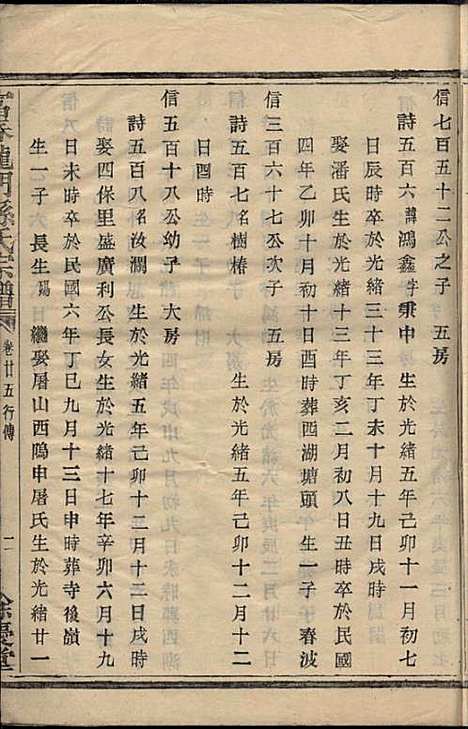 信七百五十二公之子　五房
詩五百六諱鴻鑫字秉申　生於光緒五年己卯十一月初七
日辰時卒於光緒三十三年丁未十月十九日戌時
娶潘氏生於光緒十三年丁亥二月初八日丑時卒於民國
四年乙卯十月初十日酉時葬西湖塘頭　生一子　春波
信三百六十七公次子　五房
詩五百七名樹椿　生於光緒五年己卯十二月十二
日酉時
信五百十八公幼子　大房
詩五百八名汝潤　生於光緒五年己卯十二月十三日戌時
娶四保里盛廣利公長女生於光緒十七年辛卯六月十九
日未時卒於民國六年丁巳九月十三日申時葬寺後嶺
生一子　長生殤　繼娶屠山西隖申屠氏生於光緒廿一
富春龍門孫氏宗譜　卷廿五行傳　餘慶堂